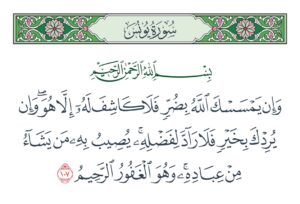 سُورَةُ يُونُسَ
بِسْمِ اللَّهِ الرَّحْمَٰنِ الرَّحِيمِ
وَإِن يَمْسَسْكَ اللَّهُ بِضُرٍّ فَلَا كَاشِفَ لَهُۥٓ إِلَّا هُوَ ۖ وَإِن
يُرِدْكَ بِخَيْرٍ فَلَا رَآدَّ لِفَضْلِهِۦ ۚ يُصِيبُ بِهِۦ مَن يَشَآءُ
مِنْ عِبَادِهِۦ ۚ وَهُوَ الْغَفُورُ الرَّحِيمُ ١٠٧